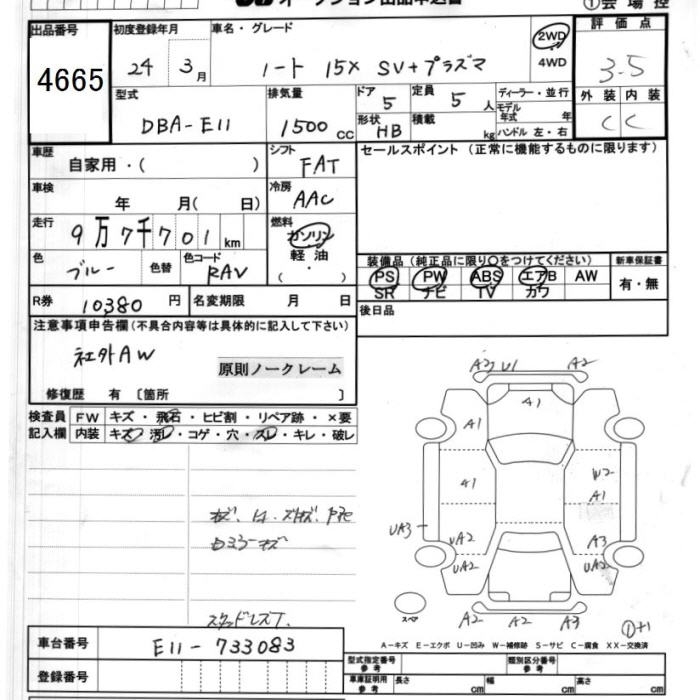 オークション出品申込書
①会場控
出品番号 4665
初度登録年月 24 3月
車名・グレード ノート 15X SV+プラズマ
2WD
4WD
評価点 3.5
外装 C 内装 C
型式 DBA-E11
排気量 1500 CC
ドア 5
形状 HB
定員 5 人
積載 kg
ディーラー・並行
モデル年式 年
ハンドル 左・右
車歴 自家用・( )
シフト FAT
セールスポイント (正常に機能するものに限ります)
車検 年 月( 日)
冷房 AAC
走行 9万7千701km
燃料 ガソリン
軽油
・
( )
色 ブルー 色替
色コード RAV
装備品 (純正品に限り○をつけてください)
PS PW ABS エアB AW
SR ナビ TV カワ
新車保証書
有・無
R券 10380 円
名変期限 月 日
後日品
注意事項申告欄(不具合内容等は具体的に記入して下さい)
社外AW
原則ノークレーム
修復歴 有 〔箇所 〕
検査員記入欄
FW キズ・飛石・ヒビ割・リペア跡・×要
内装 キズ・汚レ・コゲ・穴・スレ・キレ・破レ
A2 U1 A2
A1
A1
A1
W2
A1
UA3
UA2
A3
UA2
UA2
スペア
A2 A2 A3
①+1
スタッドレスT.
車台番号 E11-733083
A－キズ E－エクボ U－凹み W－補修跡 S－サビ C－腐食 XX－交換済
登録番号
型式指定番号 参考
類別区分番号 参考
車庫証明用 参考
長さ cm
幅 cm
高さ cm